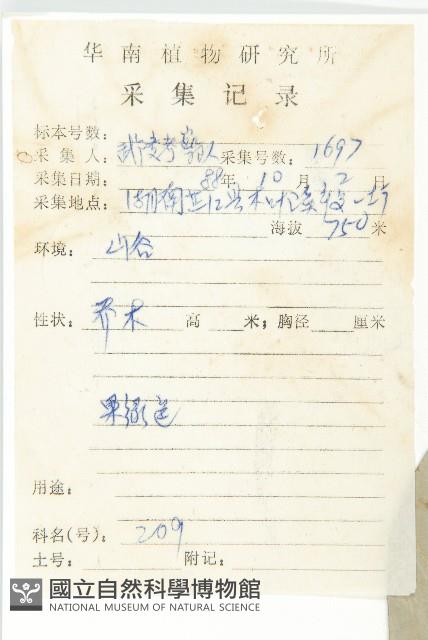 华南植物研究所
采集记录
标本号数:
采集人: 武陵考察队 采集号数: 1697
采集日期: 88年 10月 2日
采集地点: 湖南芷江县
海拔 750米
环境: 山谷
性状: 乔木 高 米; 胸径 厘米
果绿色
用途:
科名(号): 209
土号: 附记:
國立自然科學博物館
NATIONAL MUSEUM OF NATURAL SCIENCE